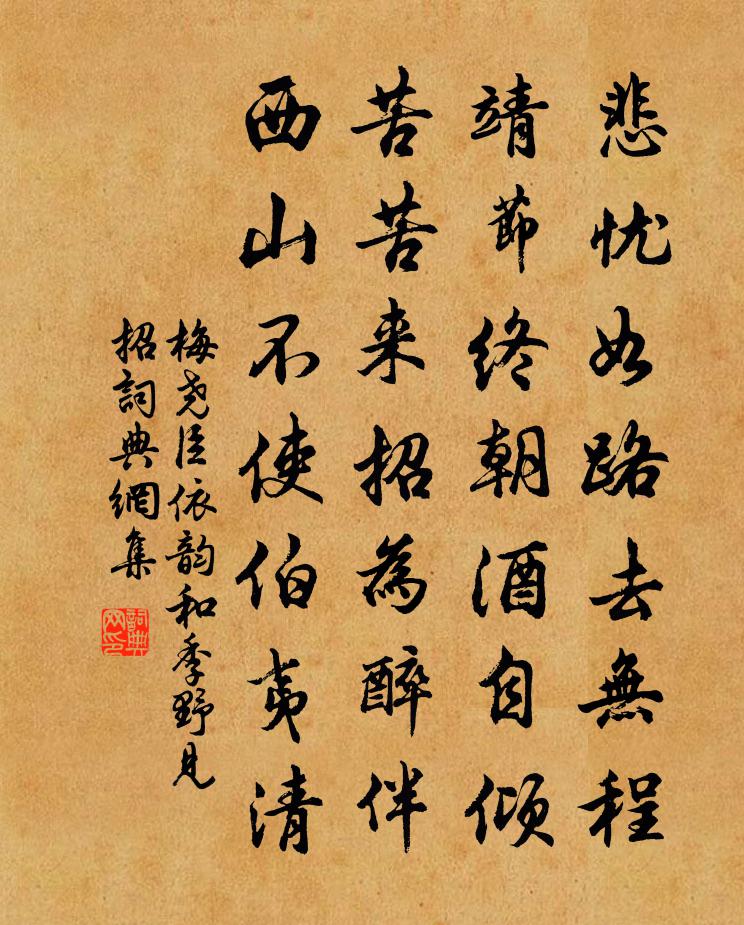 悲忧如路去無程
靖節終朝酒自傾
苦苦来招為醉伴
西山不使伯夷清
梅尧臣依韵和季野見
招詞典網集
詞典
网印